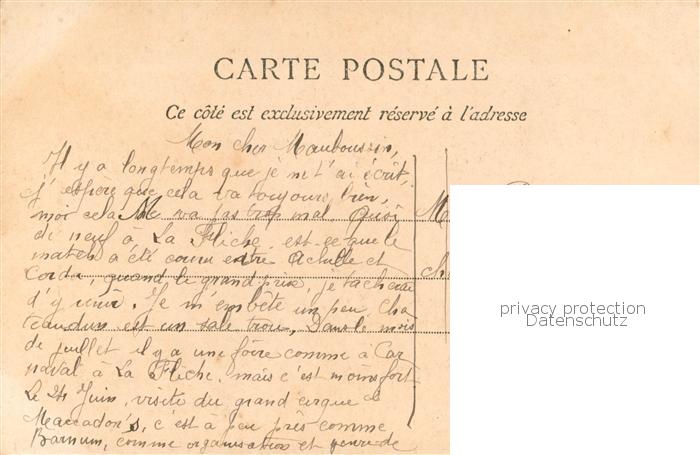 CARTE POSTALE
Ce côté est exclusivement réservé à l'adresse
Mon cher Mauboussin,
Il y a longtemps que je ne t'ai écrit,
j'espère que cela va toujours bien,
moi cela ne va pas trop mal. Quoi
de neuf à La Flèche, est-ce que le
match a été couru entre Achille et
quand le grand prix, je tacherai
d'y venir. Je m'embête un peu, Cha
teaudun est un sale trou, Dans le mois
de juillet il y a une foire comme à Car
naval à La Flèche, mais c'est moins fort
Le 24 Juin, visite du grand cirque
Maccadon's, c'est à peu près comme
Barnum, comme organisation et genre de
privacy protection
Datenschutz